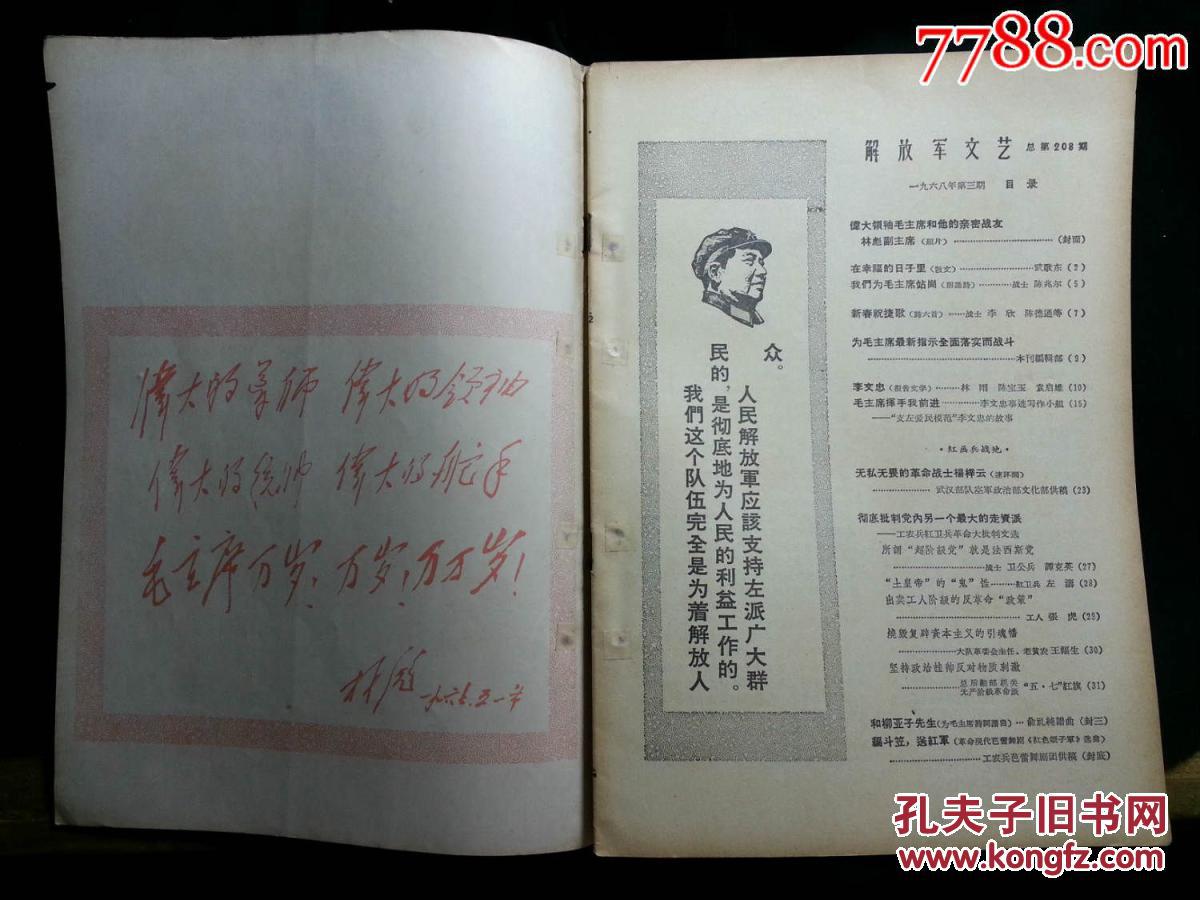 7788.com
偉大的导师 偉大的領袖
偉大的統帅 偉大的舵手
毛主席万岁！万岁！万万岁！
林彪
众。
人民解放軍应該支持左派广大群
民的，是彻底地为人民的利益工作的。
我們这个队伍完全是为着解放人
解放军文艺 总第208期
一九六八年第三期 目录
偉大領袖毛主席和他的亲密战友
林彪副主席（照片）(封面)
在幸福的日子里（散文）武敬东 (2)
我們为毛主席站崗（朗誦詩）战士 陈兆尔 (5)
新春祝捷歌（詩六首）战士 李欣 陈德通等 (7)
为毛主席最新指示全面落实而战斗
本刊編輯部 (9)
李文忠（报告文学）林雨 陈宝玉 袁启雄 (10)
毛主席揮手我前进李文忠事迹写作小組 (15)
——“支左爱民模范”李文忠的故事
·紅画兵战地·
无私无畏的革命战士楊祥云（連环画）
武汉部队空軍政治部文化部供稿 (23)
彻底批判党內另一个最大的走資派
——工农兵紅卫兵革命大批判文选
所謂“超阶級党”就是法西斯党
战士 卫公兵 譚克英 (27)
“土皇帝”的“鬼”性紅卫兵 左濤 (28)
出卖工人阶級的反革命“政策”
工人 張虎 (29)
燒毁复辟資本主义的引魂幡
大队革委会主任、老貧农 王福生 (30)
坚持政治挂帅反对物质刺激
总后勤部机关
无产阶級革命派 “五·七”紅旗 (31)
和柳亚子先生（为毛主席詩詞譜曲）俞礼純譜曲 (封三)
編斗笠，送紅軍（革命現代芭蕾舞剧《紅色娘子軍》选曲）
工农兵芭蕾舞剧团供稿 (封底)
孔夫子旧书网
www.kongfz.com